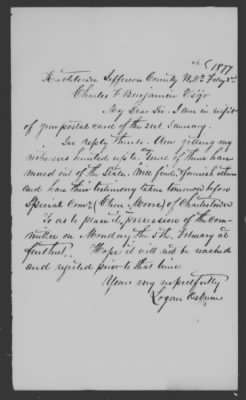 1877
Jefferson County W. Va. Feby 2nd
Charles F Benjamin Esqr
My Dear Sir. I am in receipt
of your postal card of the 31st January.
In reply thereto. Am getting my
witnesses hunted up to
moved out of the State. Will find, furnish others
and have their testimony taken tomorrow before
Special Comr. (Clem. Moore) of Charlestown
So as to place it, possession of the com
mittee on Monday the 5th February at
furthest. Hope it will not be
and rejected prior to that time
Yours very respectfully
Logan Osburn